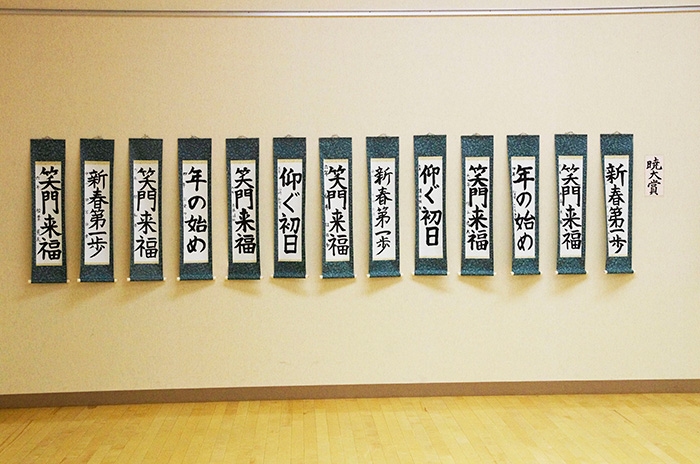 暁大賞
新春第一歩
笑門来福
年の始め
笑門来福
仰ぐ初日
新春第一歩
笑門来福
仰ぐ初日
笑門来福
年の始め
笑門来福
新春第一歩
笑門来福